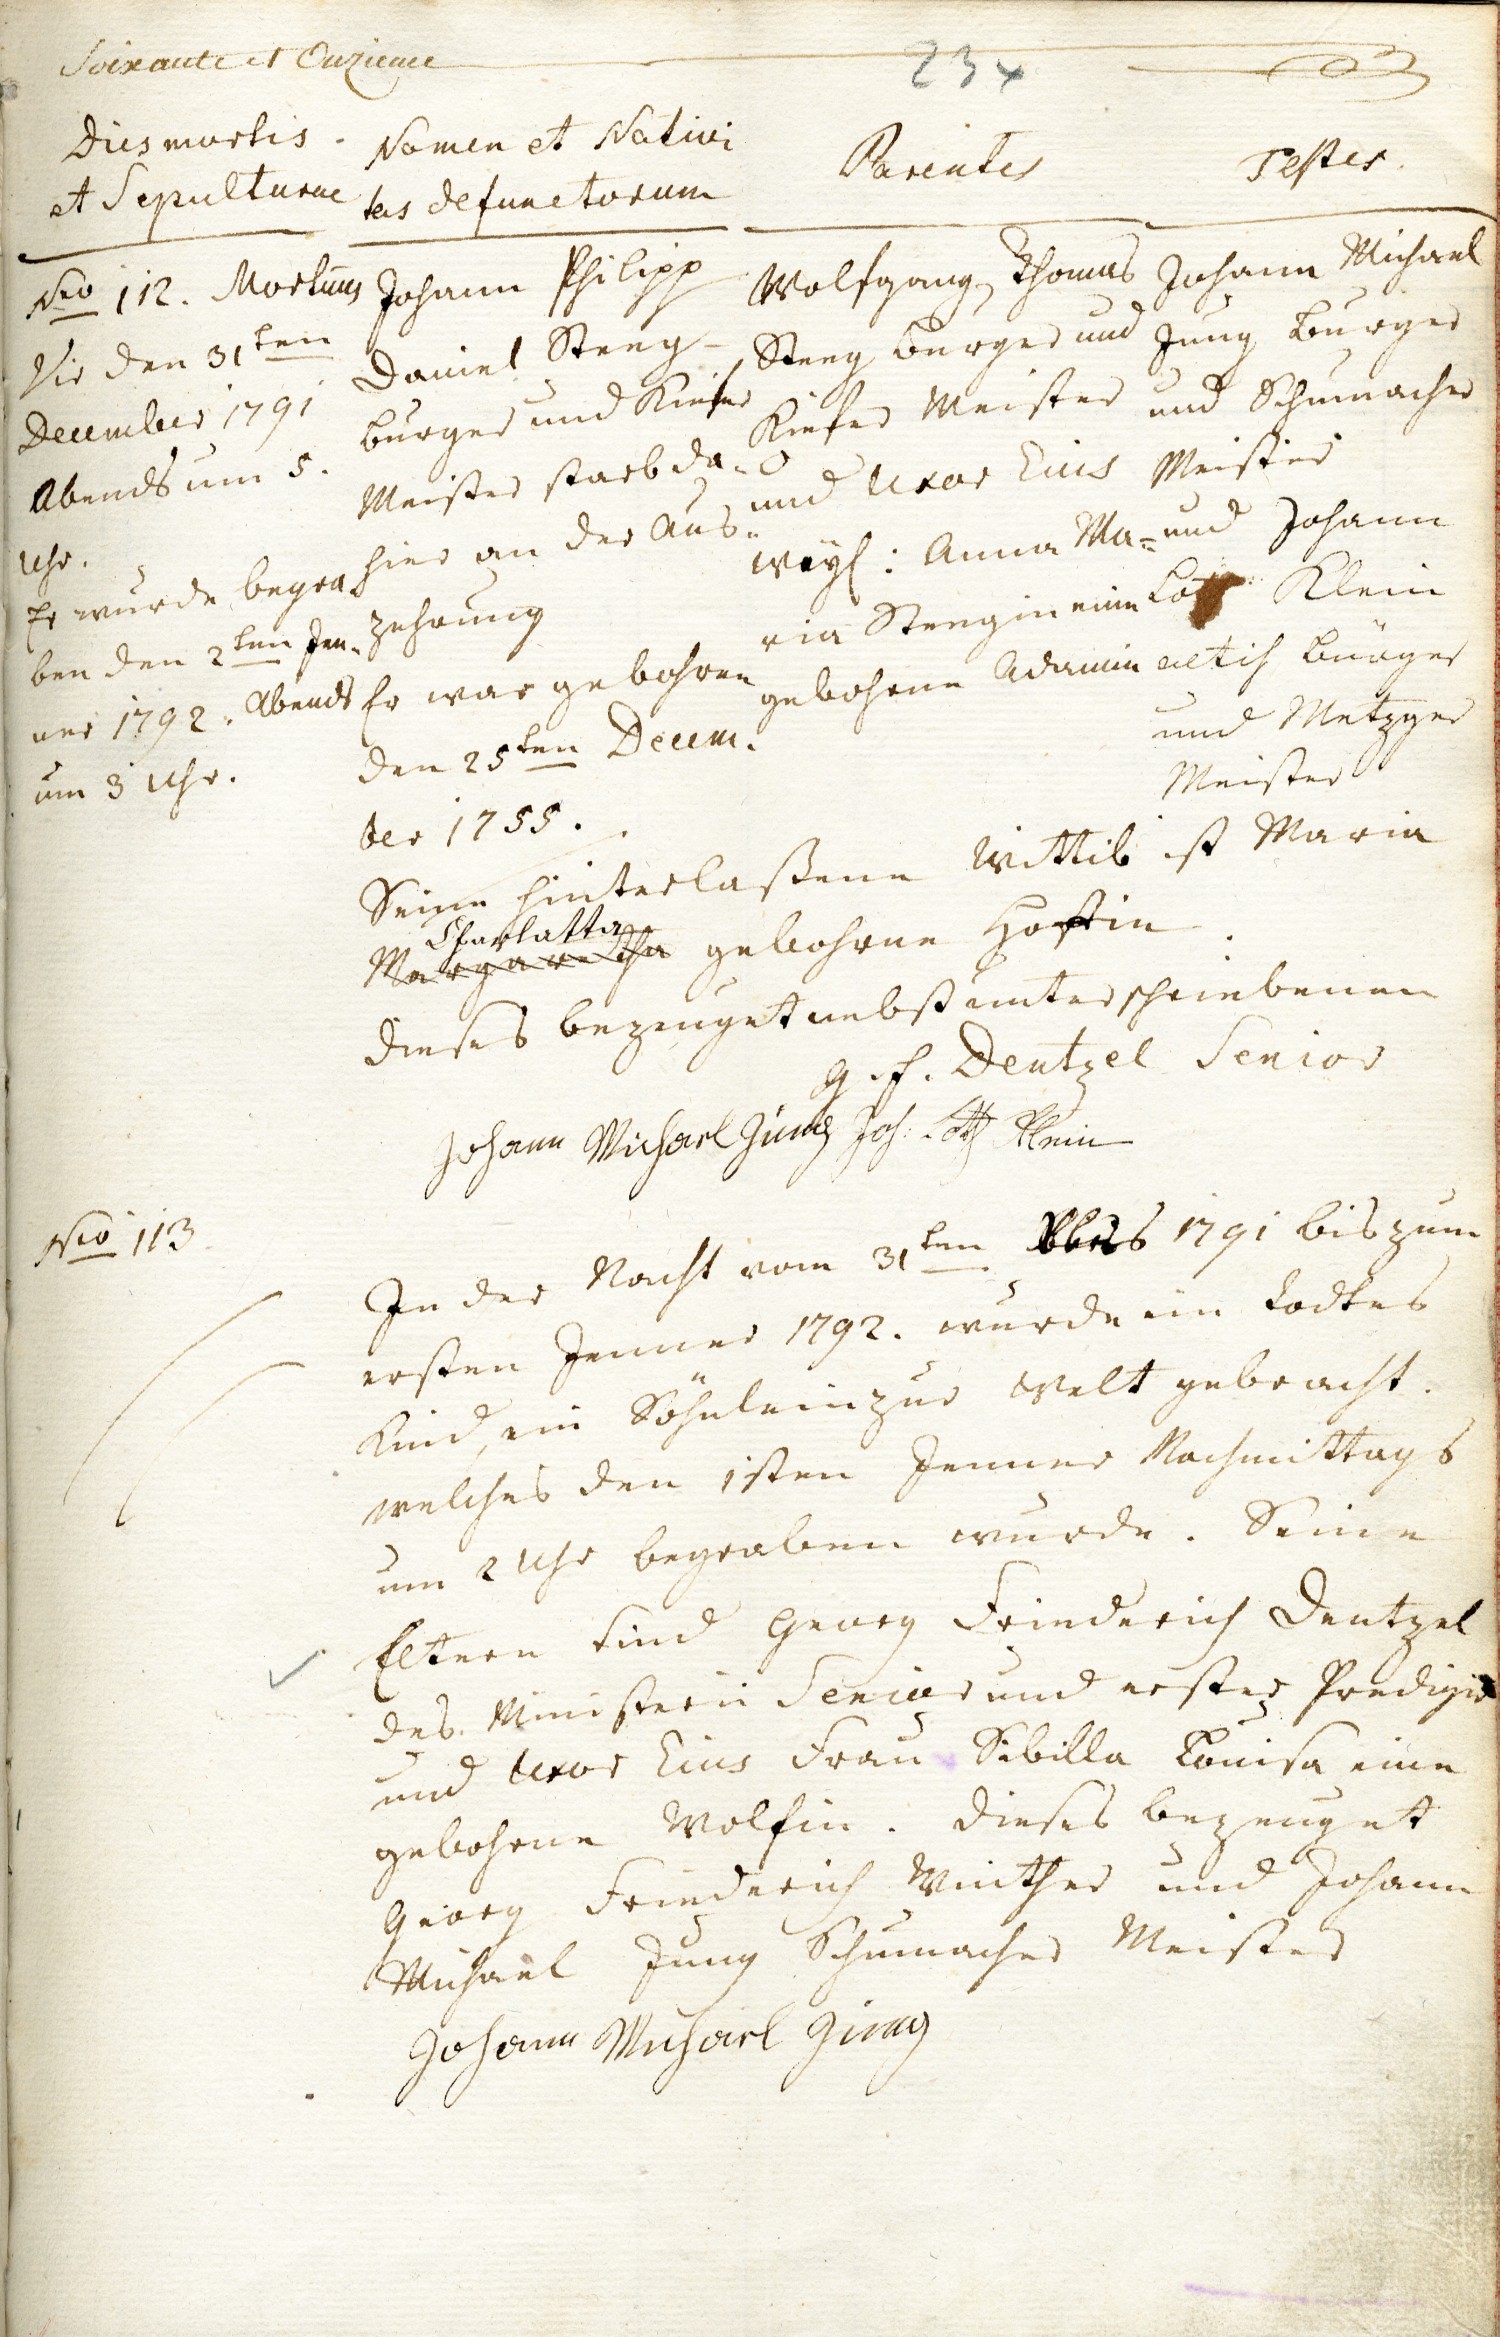 Soixante et Onzieme
23x
Dies mortis
et Sepulturae
Nomen et Nativi
tas defunctorum
Parentes
Testes.
Nro 112. Mortuus
Vir den 31ten
December 1791
Abends um 5.
Uhr.
Er wurde begra
ben den 2ten Jen-
ner 1792. Abends
um 3 Uhr.
Johann Philipp
Daniel Steeg
burger und Kiefer
Meister starb da-
hier an der Aus-
zehrung
Er war gebohren
den 25ten Decem-
ber 1755.
Wolfgang Thomas
Steeg burger und
Kiefer Meister
und Uxor Eius
weyl: Anna Ma-
ria Steegin eine
gebohrne Adamin
Johann Michael
Jung burger
und Schumacher
Meister
und Johann
Klein
bürger
und Metzger
Meister
Seine hinterlaßene Wittib ist Maria
Charlatta
Margaretha gebohrne Hoffin
dieses bezeuget nebst unterschriebenen
G. F. Dentzel Senior
Johann Michael Jung Joh. Klein
Nro 113
In der Nacht vom 31ten Xbris 1791 bis zum
ersten Jenner 1792. wurde ein todtes
Kind, ein Söhnlein zur Welt gebracht.
welches den 1sten Jenner Nachmittags
um 2 Uhr begraben wurde. Seine
Eltern sind Georg Friederich Dentzel
des Ministerii Senior und erster Prediger
und Uxor Eius Frau Sibilla Louisa eine
gebohrne Wolfin. dieses bezeuget
Georg Friederich Winther und Johann
Michael Jung Schumacher Meister
Johann Michael Jung